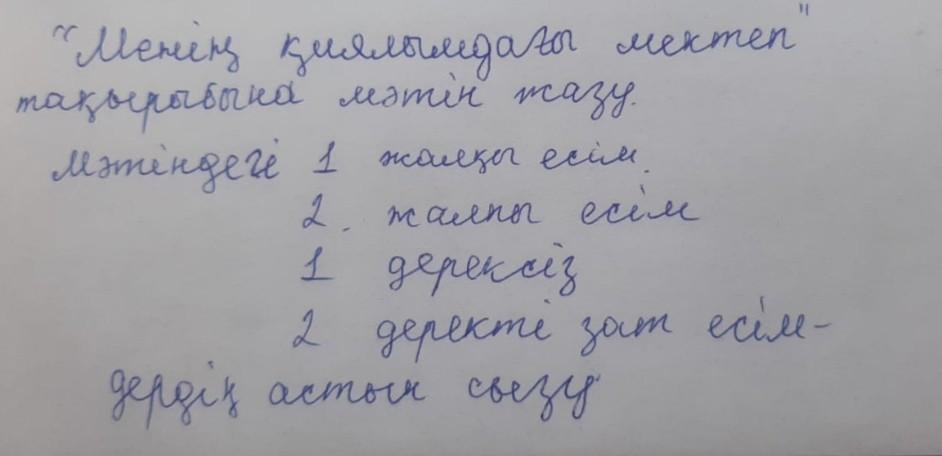 "Менің қиялымдағы мектеп"
тақырыбына мәтін жазу.
Мәтіндегі 1 жалқы есім.
2. жалпы есім
1 дерексіз
2 деректі зат есім-
дердің астын сызу